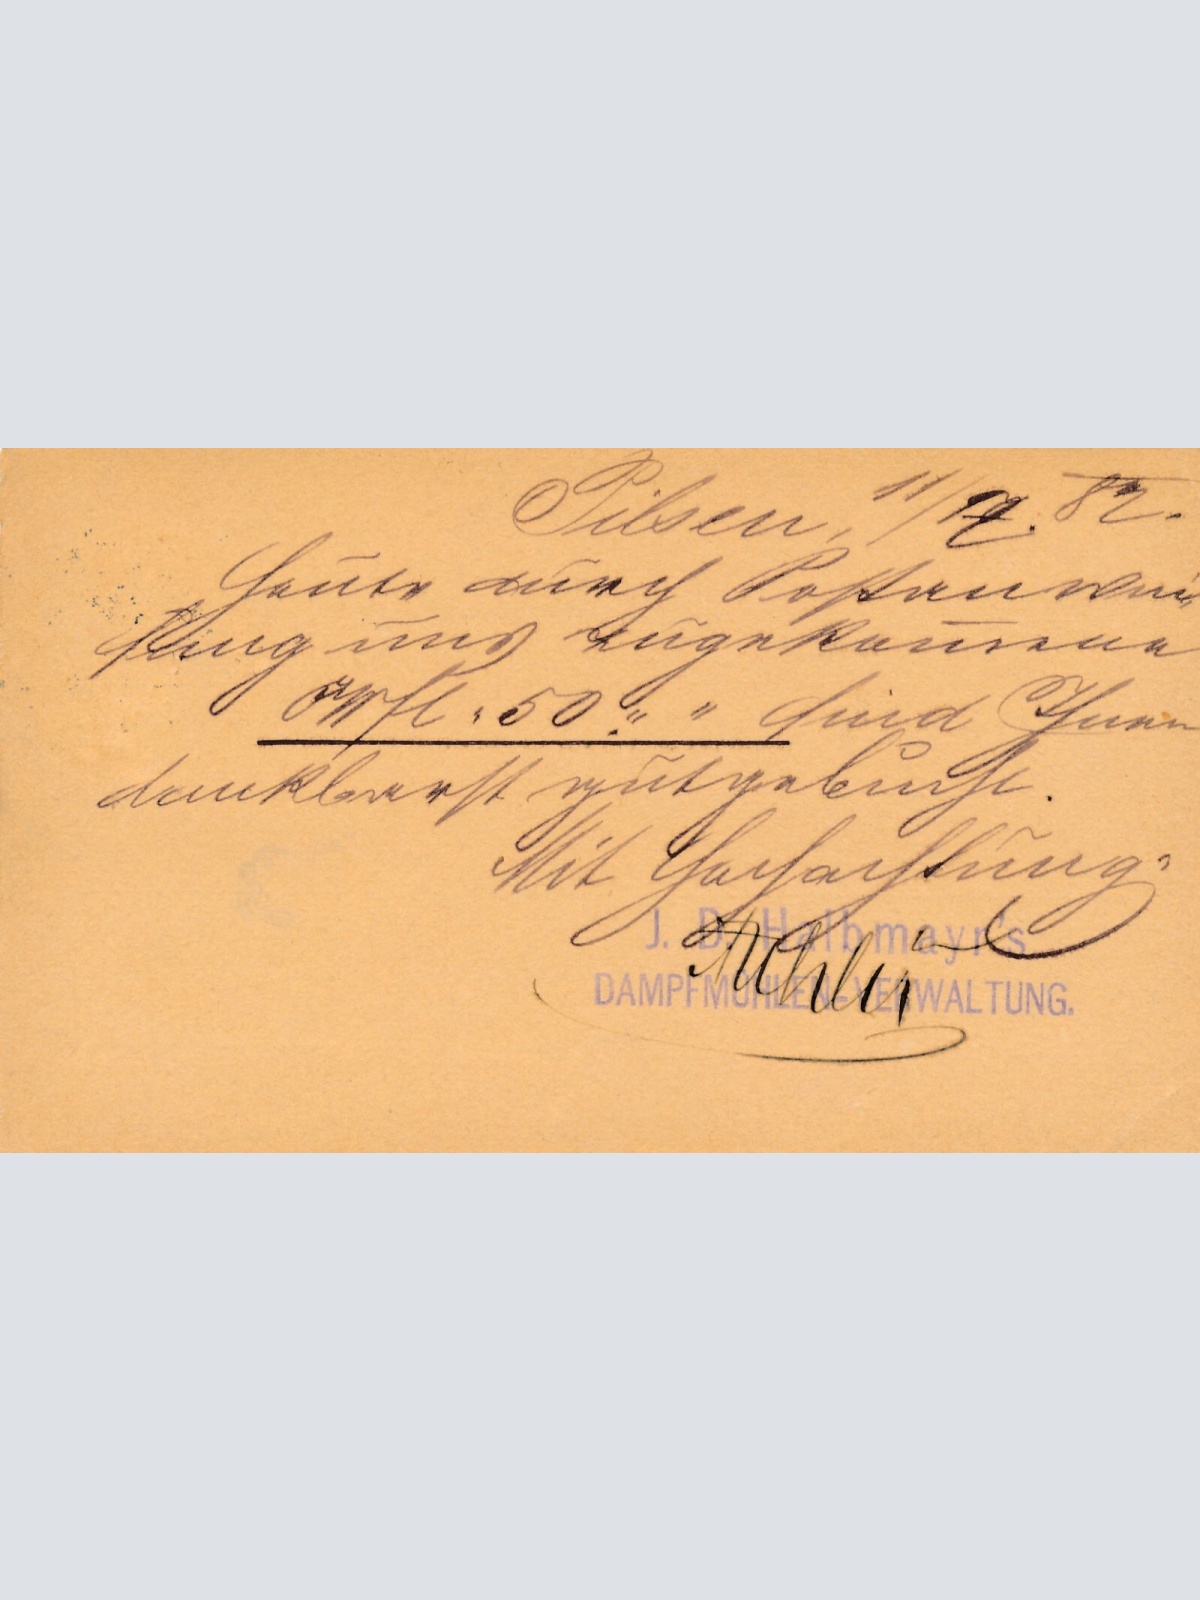 Pilsen, 11/12. 82.
Heute durch Postanwei
sung uns zugekom̅ene
ÖWfl „50.„ „ sind Ihnen
dankbarst gutgebucht.
Mit Hochachtung
J. D. Halbmayr's
DAMPFMÜHLEN-VERWALTUNG.